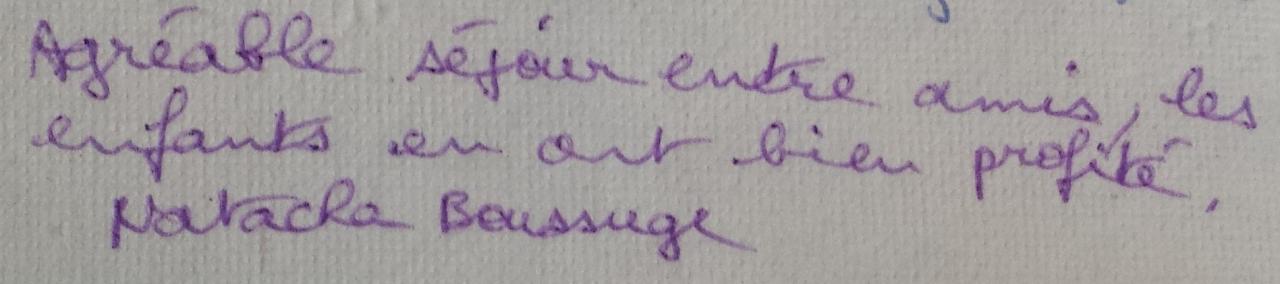 Agréable séjour entre amis, les
enfants en ont bien profité.
Natacha Boussuge